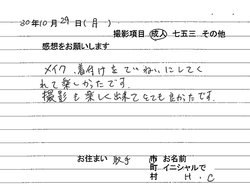 30年10月29日(月)
撮影項目 成人 七五三 その他
感想をお願いします
メイク、着付けをていねいにしてく
れて楽しかったです。
撮影も楽しく出来てとても良かったです。
お住まい 取手 市 お名前
町 イニシャルで
村 H.C